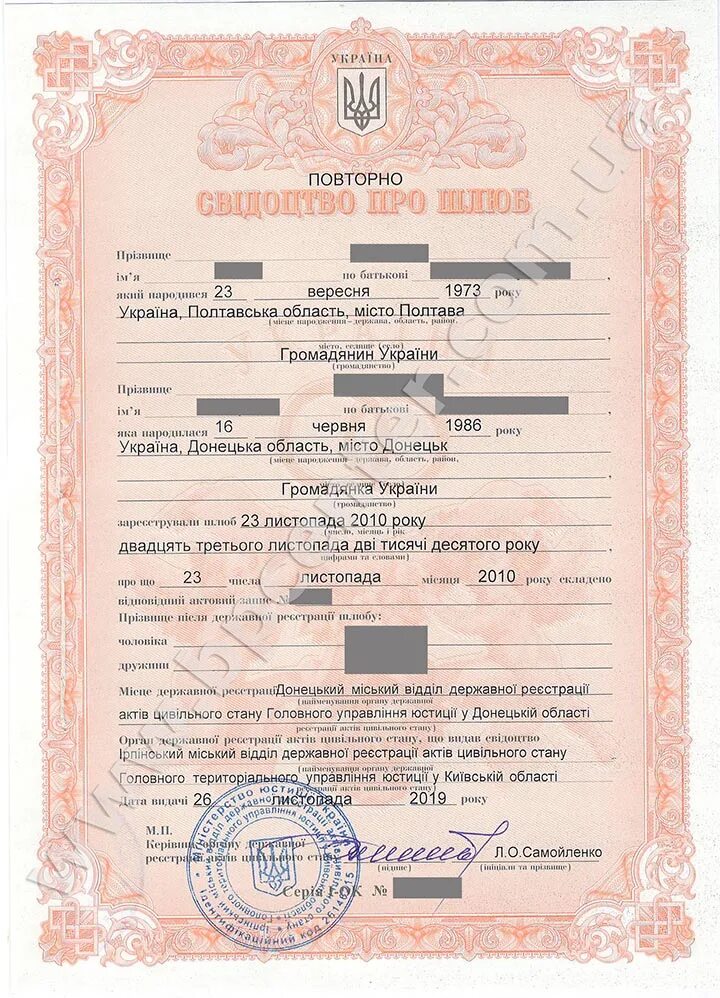 УКРАЇНА
ПОВТОРНО
СВІДОЦТВО ПРО ШЛЮБ
Прізвище
ім'я по батькові ,
який народився 23 вересня 1973 року
Україна, Полтавська область, місто Полтава
(місце народження–держава, область, район,
місто, селище (село)
Громадянин України
(громадянство)
Прізвище
ім'я по батькові ,
яка народилася 16 червня 1986 року
Україна, Донецька область, місто Донецьк
(місце народження–держава, область, район,
місто, селище (село)
Громадянка України
(громадянство)
зареєстрували шлюб 23 листопада 2010 року
(число, місяць і рік
двадцять третього листопада дві тисячі десятого року
цифрами та словами)
про що 23 числа листопада місяця 2010 року складено
відповідний актовий запис №
Прізвище після державної реєстрації шлюбу:
чоловіка
дружини
Місце державної реєстрації Донецький міський відділ державної реєстрації
(найменування органу державної
актів цивільного стану Головного управління юстиції у Донецькій області
реєстрації актів цивільного стану)
Орган державної реєстрації актів цивільного стану, що видав свідоцтво
Ірпінський міський відділ державної реєстрації актів цивільного стану
(найменування органу державної
Головного територіального управління юстиції у Київській області
реєстрації актів цивільного стану)
Дата видачі 26 листопада 2019 року
М.П.
Керівник органу державної
реєстрації актів цивільного стану Л.О.Самойленко
(підпис) (ініціали та прізвище)
Серія І-ОК №
Міністерство юстиції України
ідентифікаційний код
www.bpcenter.com.ua